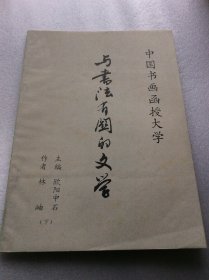 中国书画函授大学
与书法有关的文学
主编 欧阳中石
作者 林岫
（下）